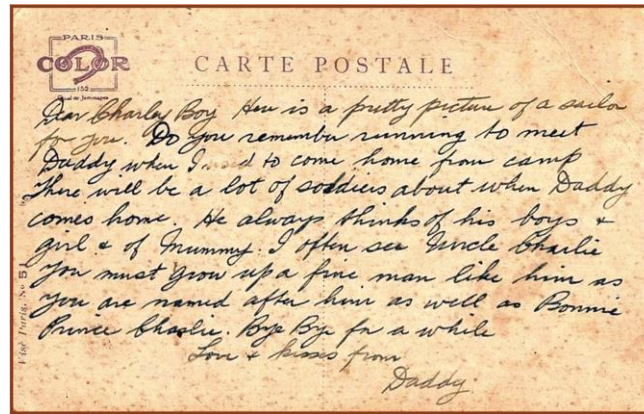 PARIS
COLOR
152
CARTE POSTALE
Dear Charley Boy Here is a pretty picture of a sailor
for you. Do you remember running to meet
Daddy when I used to come home from camp
There will be a lot of soldiers about when Daddy
comes home. He always thinks of his boys &
girl & of Mummy. I often see Uncle Charlie
You must grow up a fine man like him as
you are named after him as well as Bonnie
Prince Charlie. Bye Bye for a while
Love & kisses from
Daddy.
Visé Paris. No 51